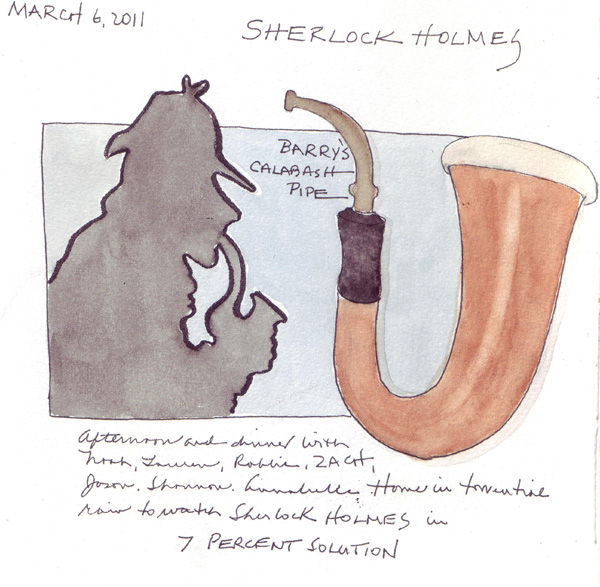 MARCH 6, 2011
SHERLOCK HOLMES
BARRY'S
CALABASH
PIPE
afternoon and dinner with
Noah, Lauren, Robbie, ZACH,
Jason, Shannon, Annabelle. Home in torrential
rain to watch SherLOCK HOLMES in
7 PERCENT SOLUTION